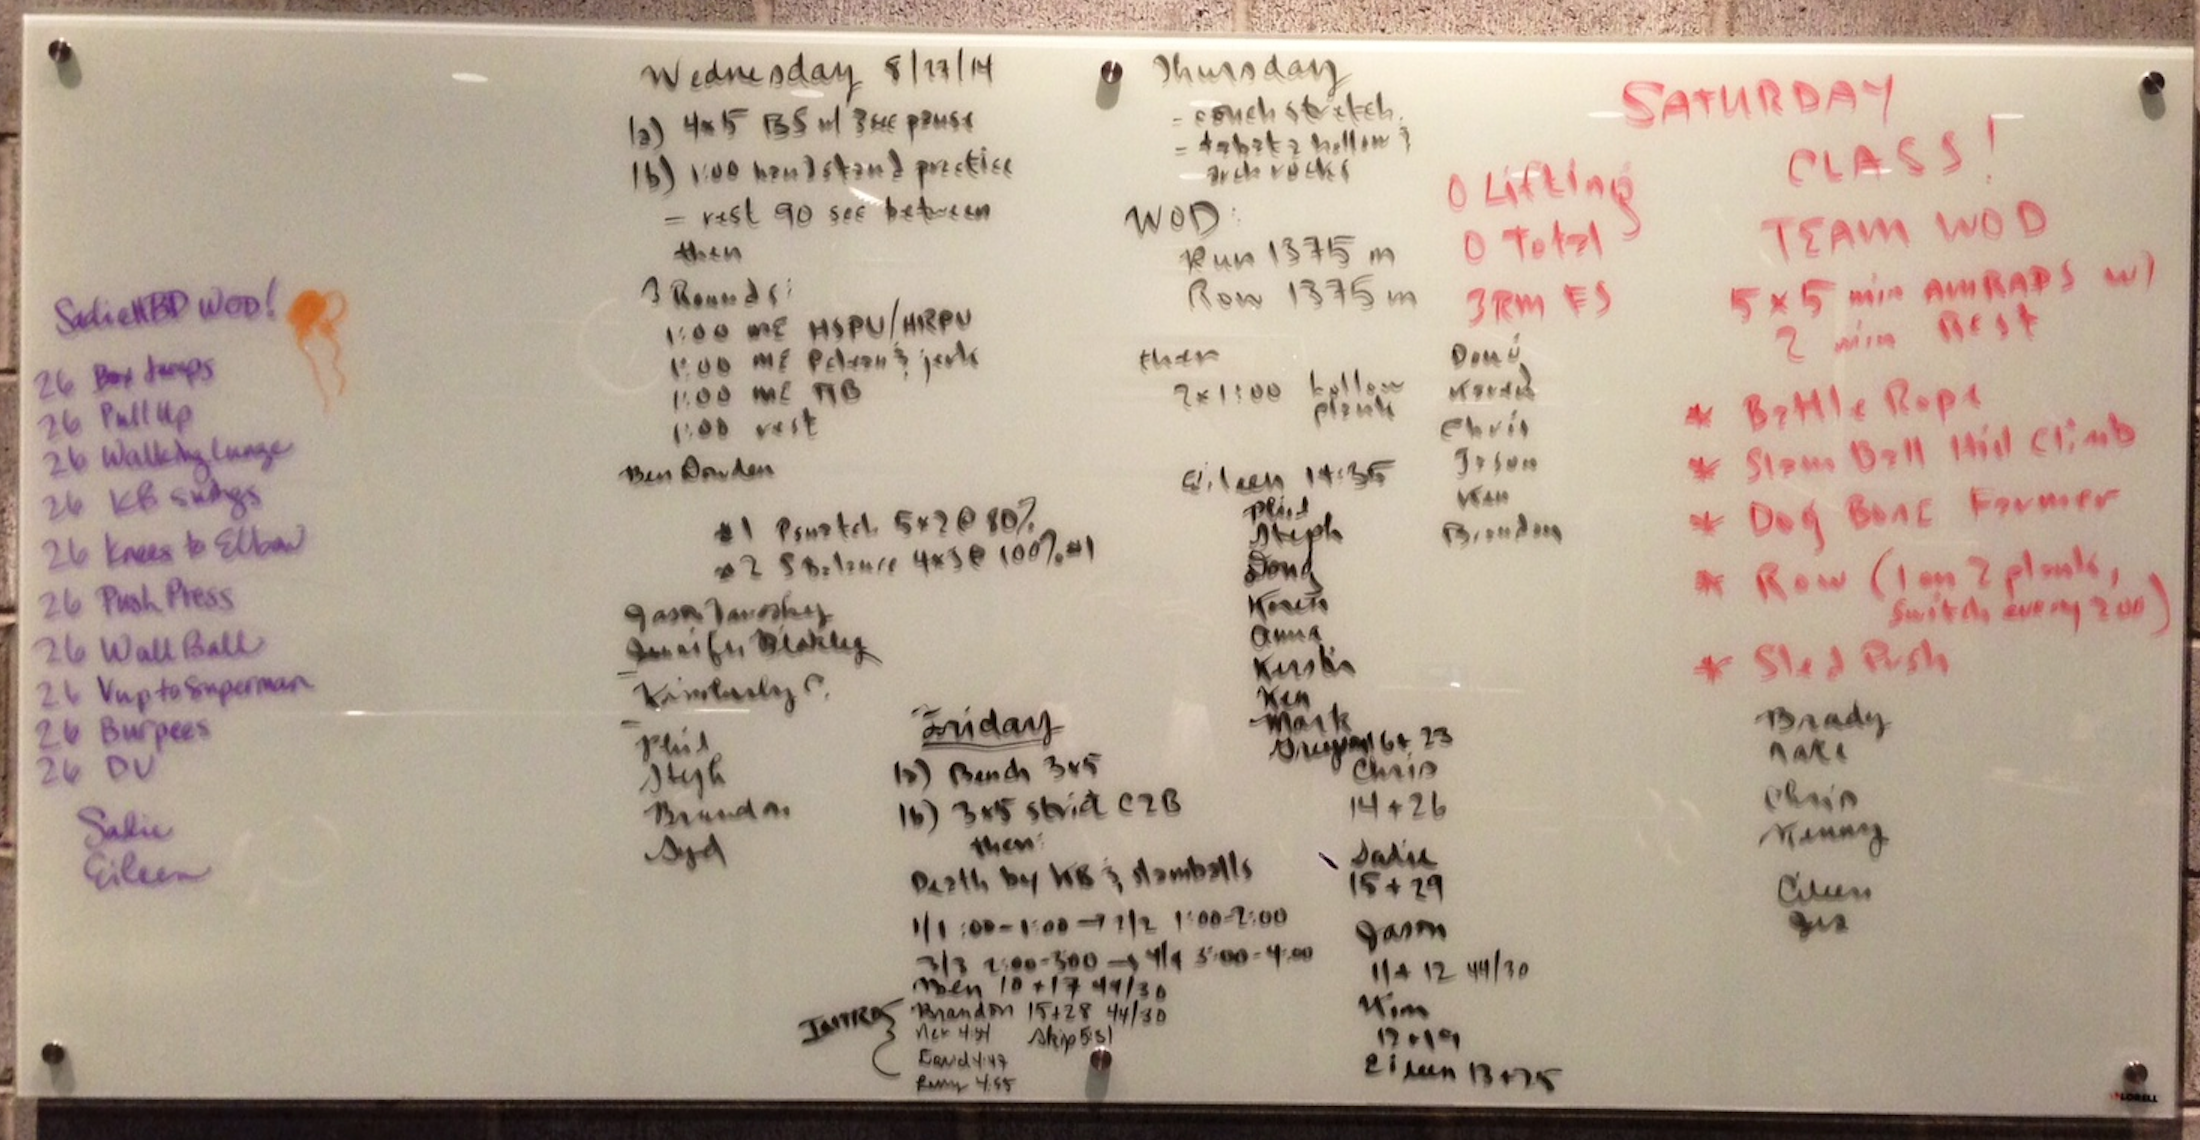 Sadie HBD WOD!
26 Box Jumps
26 Pull Up
26 Walking Lunge
26 KB Swings
26 Knees to Elbow
26 Push Press
26 Wall Ball
26 Vup to Superman
26 Burpees
26 DU
Sadie
Eileen
Wednesday 8/27/14
1a) 4x5 BS w/ 3 sec pause
1b) 1:00 handstand practice
- rest 90 sec between
then
3 Rounds:
1:00 ME HSPU/HRPU
1:00 ME Pclean & jerk
1:00 ME
1:00 rest
Ben Dowden
#1 Psnatch 5x2 @ 80%
#2 SBalance 4x3 @ 100% #1
Jason
Jennifer Blakley
Kimberley C.
Phil
Steph
Brandon
Syd
Friday
1a) Bench 3x5
1b) 3x5 strict C2B
then:
Death by KB & slamballs
1/1 :00-1:00 → 2/2 1:00-2:00
3/3 2:00-3:00 → 4/4 3:00-4:00
Ben 10+17 44/30
Brandon 15+28 44/30
Skip 5:31
David 4:47
4:55
Thursday
- couch stretch
- tabata hollow &
arch rocks
WOD:
Run 1375 m
Row 1375 m
then
2x1:00 hollow
plank
Eileen 14:35
Phil
Steph
Doug
Karen
Anna
Kerstin
Ken
Mark
16+23
Chris
14+26
Sadie
15+29
Jason
11+12 44/30
Kim
Eileen 13+25
0 Lifting
0 Total
3RM FS
Doug
Karen
Chris
Jason
Ken
Brandon
SATURDAY
CLASS!
TEAM WOD
5x5 min AMRAPS w/
2 min Rest
* Battle Rope
* Slam Ball Hill Climb
* Dog Bone Farmer
* Row (1 on 2 plank,
switch every 200)
* Sled Push
Brady
Nate
Chris
Kenny
Eileen
LORELL